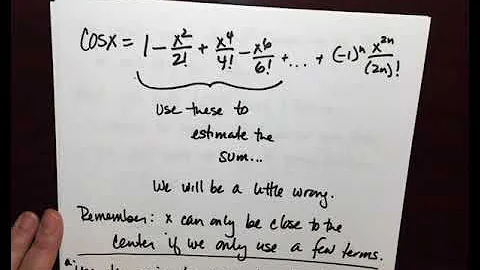 cosx = 1 - x²/2! + x⁴/4! - x⁶/6! + ... + (-1)ⁿ x²ⁿ/(2n)!
Use these to
estimate the
sum...
We will be a little wrong.
Remember: x can only be close to the
center if we only use a few terms.